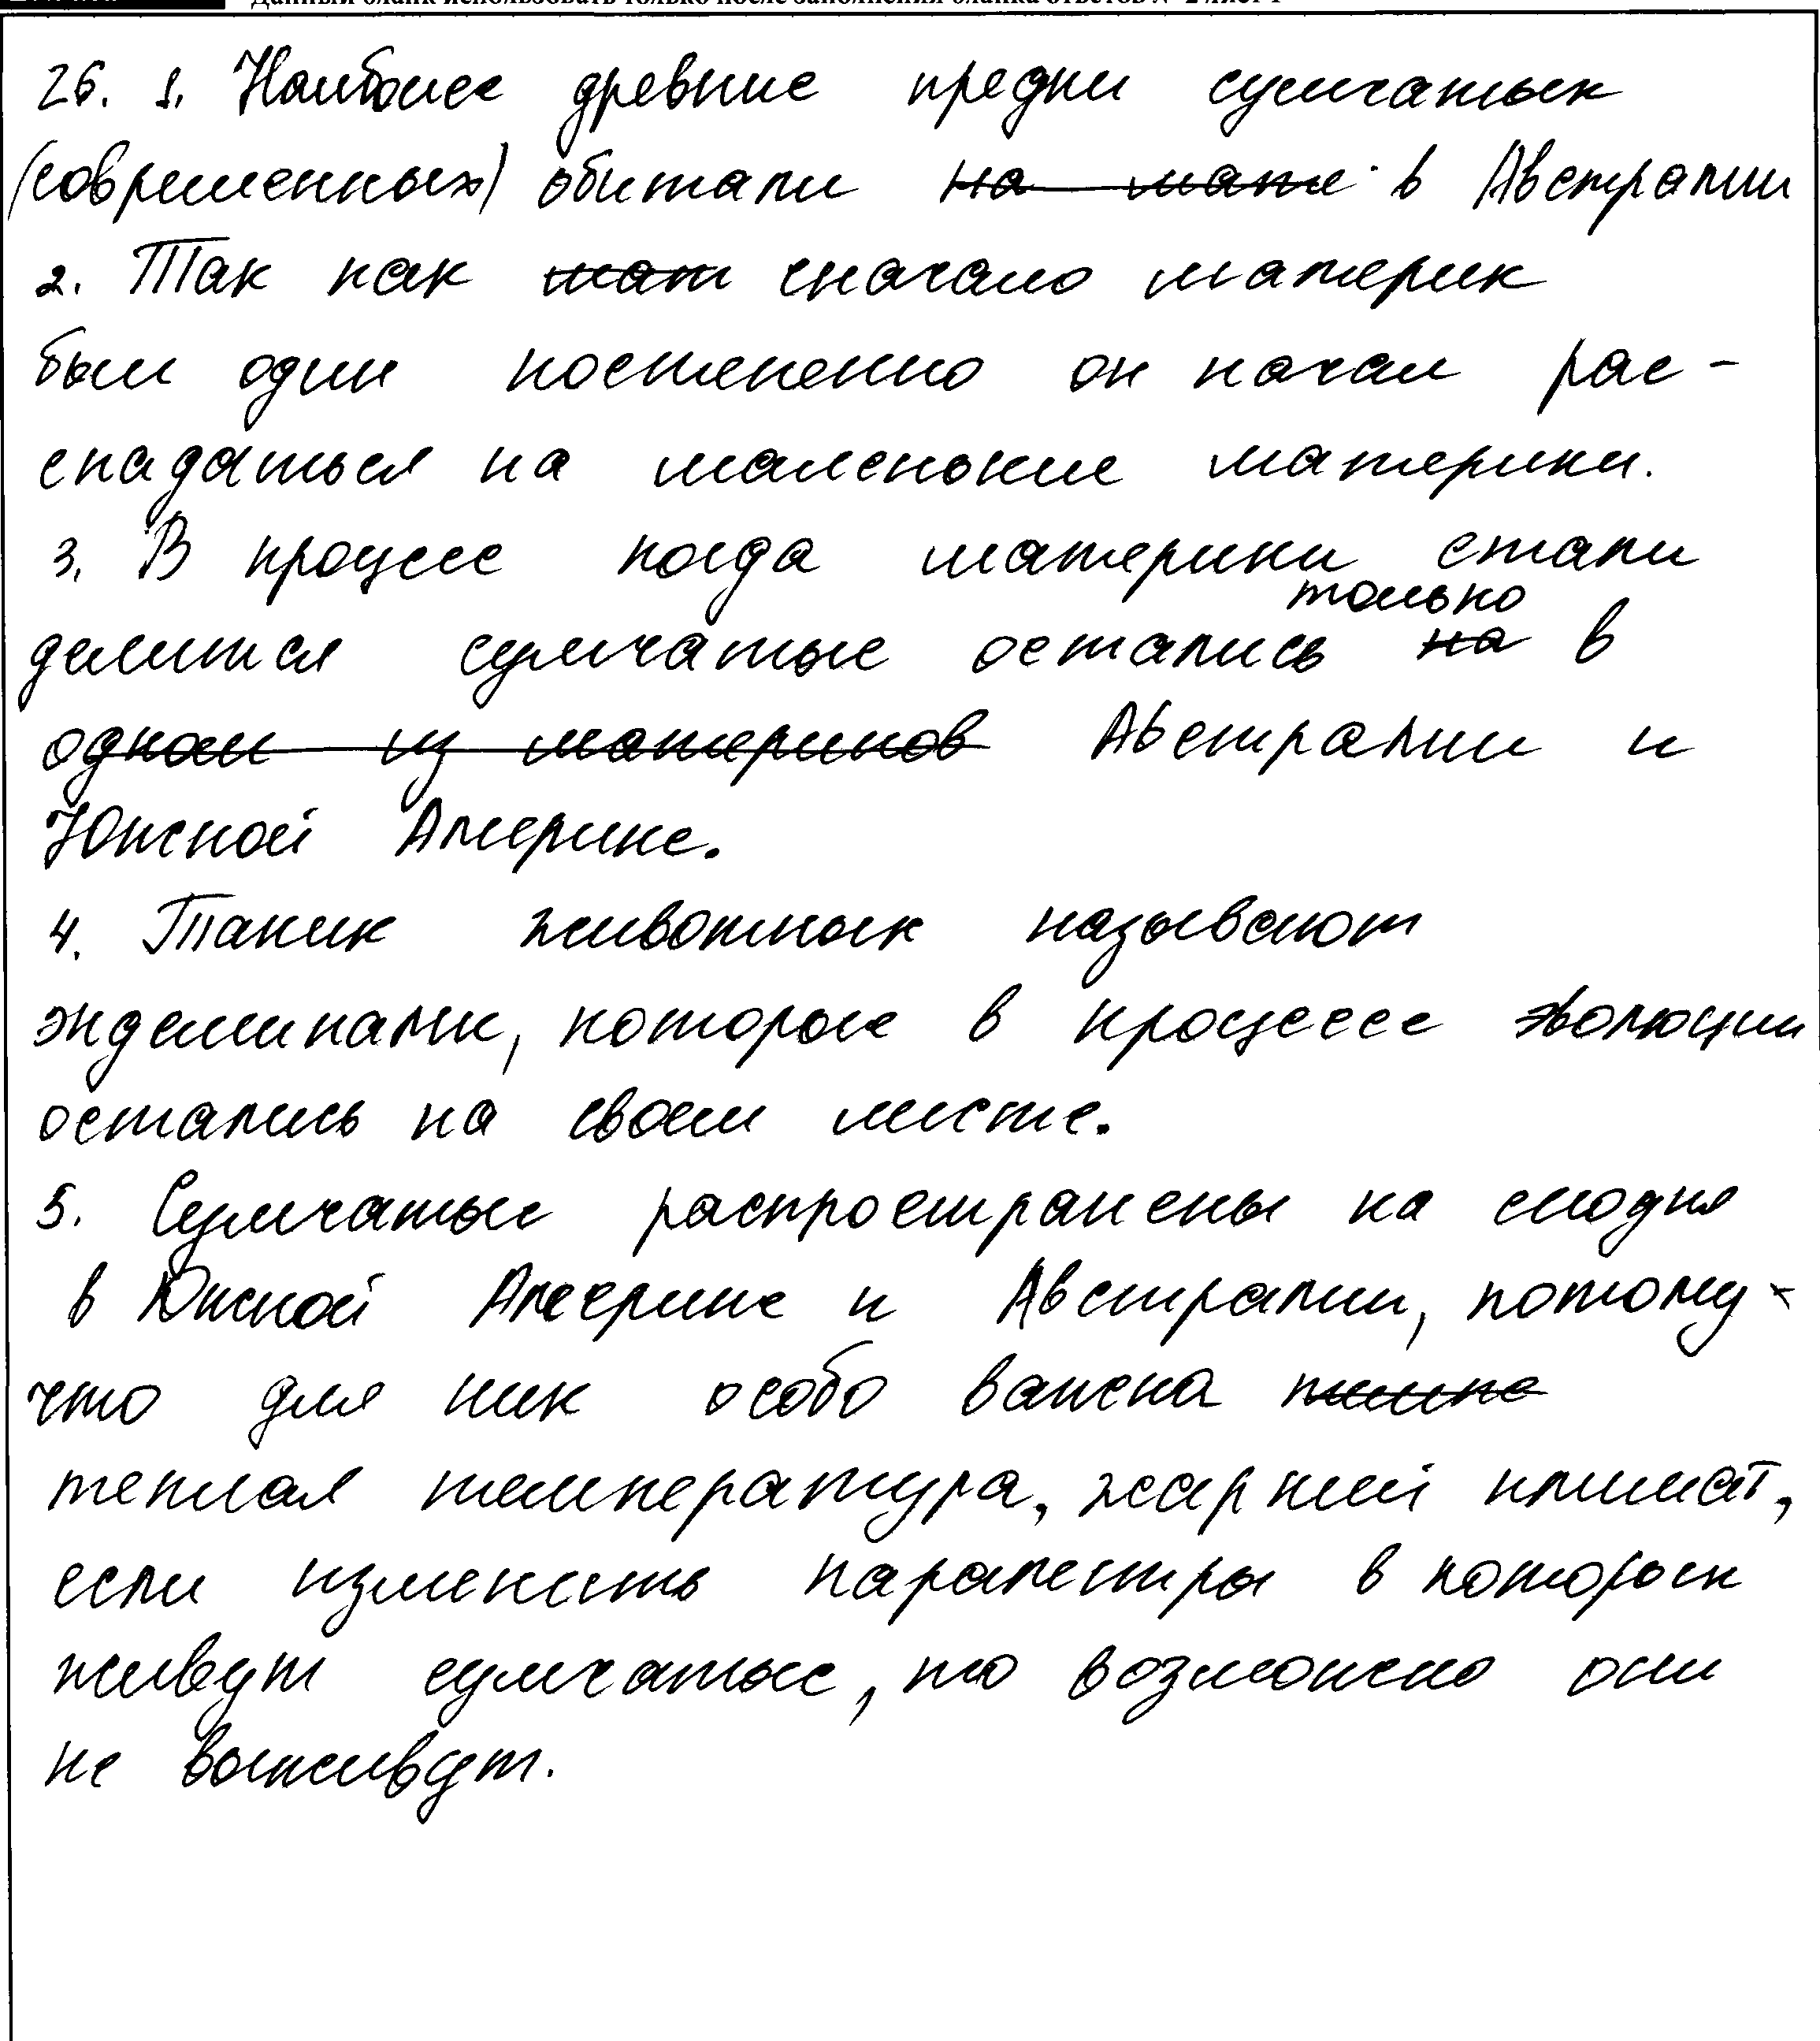 Данный бланк использовать только после заполнения бланка ответов № 2 лист 1
26. 1. Наиболее древние предки сумчатых
(современных) обитали на мате в Австралии
2. Так как мат сначало материк
был один постепенно он начал рас-
спадаться на маленькие материки.
3. В процессе когда материки стали
только
делится сумчатые остались на в
одном из материков Австралии и
Южной Америке.
4. Таких животных называют
эндемиками, которые в процессе эволюции
остались на своем месте.
5. Сумчатые распространены на сегодня
в Южной Америке и Австралии, потому-
что для них особо важна
теплая температура, жаркий климат,
если изменить параметры в которых
живут сумчатые, то возможно они
не выживут.